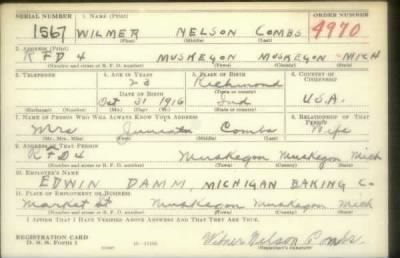 SERIAL NUMBER 1. NAME (Print) ORDER NUMBER
1567 WILMER NELSON COMBS 4970
(First) (Middle) (Last)
2. ADDRESS (Print)
RFD 4 MUSKEGON MUSKEGON MICH
(Number and street or R. F. D. number) (Town) (County) (State)
3. TELEPHONE 4. AGE IN YEARS 5. PLACE OF BIRTH 6. COUNTRY OF CITIZENSHIP
23 Richmond
DATE OF BIRTH (Town or county)
Oct 31 1916 Ind U.S.A.
(Exchange) (Number) (Mo.) (Day) (Yr.) (State or country)
7. NAME OF PERSON WHO WILL ALWAYS KNOW YOUR ADDRESS 8. RELATIONSHIP OF THAT PERSON
Mrs Combs Wife
(Mr., Mrs., Miss) (First) (Middle) (Last)
9. ADDRESS OF THAT PERSON
RFD4 Muskegon Muskegon Mich
(Number and street or R. F. D. number) (Town) (County) (State)
10. EMPLOYER'S NAME
EDWIN DAMM, MICHIGAN BAKING Co.
11. PLACE OF EMPLOYMENT OR BUSINESS
Market St Muskegon Muskegon Mich
(Number and street or R. F. D. number) (Town) (County) (State)
I AFFIRM THAT I HAVE VERIFIED ABOVE ANSWERS AND THAT THEY ARE TRUE.
REGISTRATION CARD
D. S. S. FORM 1 Wilmer Nelson Combs
(Registrant's signature)